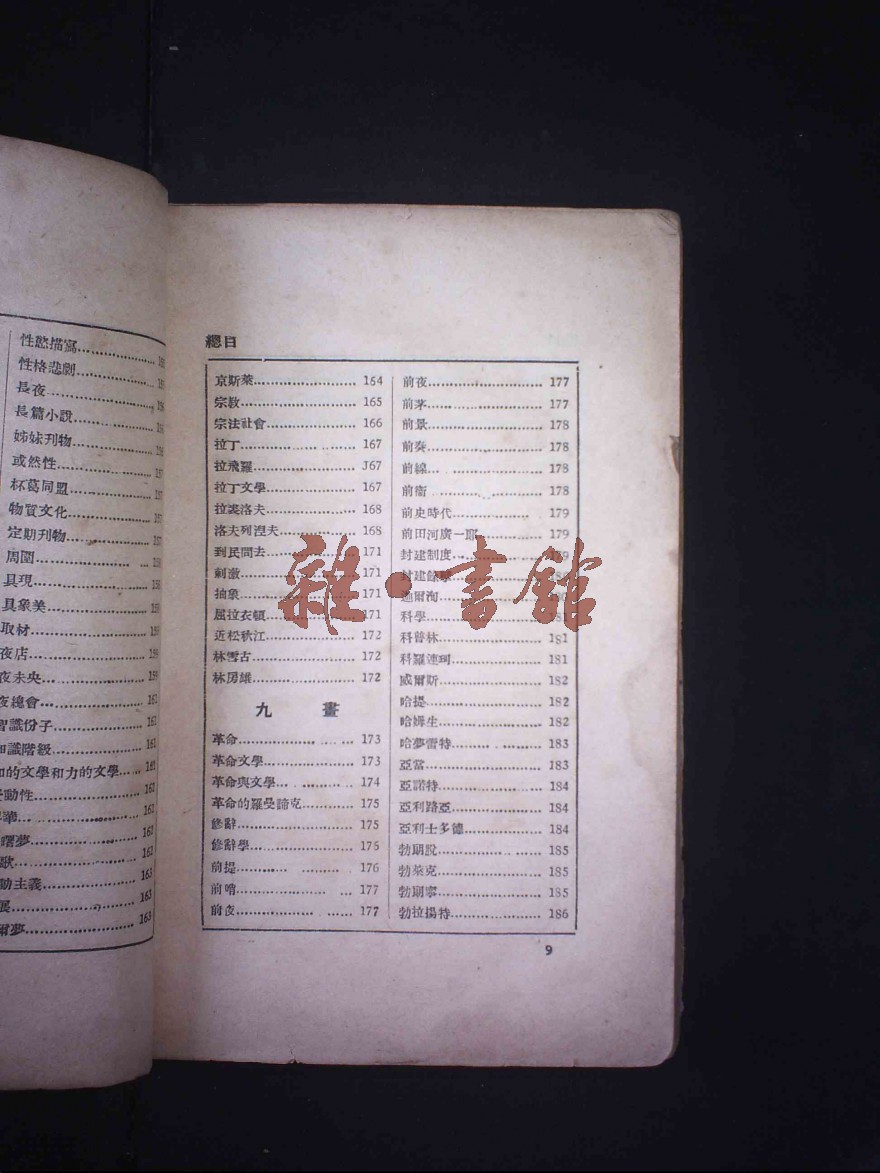 性慾描寫
性格悲劇
長夜
長篇小說
姊妹刊物
或然性
杯葛同盟
物質文化
定期刊物
周圍
具現
具象美
取材
夜店
夜未央
夜總會 161
智識份子 161
知識階級 161
的文學和力的文學 162
動性 162
夢 162
歌 162
動主義 163
展 163
爾夢 163
總目
京斯萊 164
宗教 165
宗法社會 166
拉丁 167
拉飛羅 J67
拉丁文學 167
拉裴洛夫 168
洛夫列涅夫 168
到民間去 171
刺激 171
抽象 171
屈拉衣頓 171
近松秋江 172
林雪古 172
林房雄 172
九畫
革命 173
革命文學 173
革命與文學 174
革命的羅曼諦克 175
修辭 175
修辭學 176
前提 176
前哨 177
前夜 177
前夜 177
前茅 177
前景 178
前奏 178
前線 178
前衛 178
前史時代 179
前田河廣一郎 179
封建制度
封建
迦爾洵
科學
科普林 181
科羅連珂 181
威爾斯 182
哈提 182
哈姆生 182
哈夢蕾特 183
亞當 183
亞諾特 184
亞利路亞 184
亞利士多德 184
勃朗說 185
勃萊克 185
勃朗寧 185
勃拉揚特 186
9
雜·書館